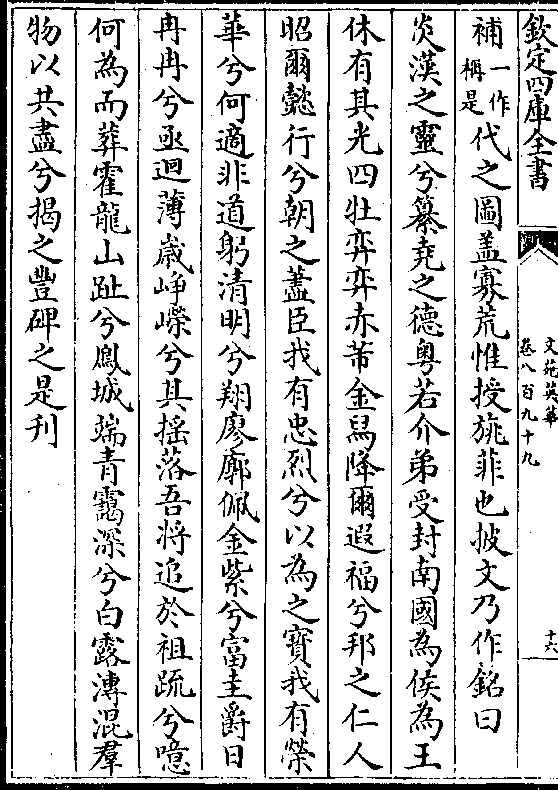 欽定四庫全書
文苑英華
卷八百九十九
十六
補一作稱是代之圖蓋寡荒惟授旐菲也披文乃作銘曰
炎漢之靈兮纂堯之德粵若介弟受封南國為侯為王
休有其光四牡弈弈赤芾金舄降爾遐福兮邦之仁人
昭爾懿行兮朝之藎臣我有忠烈兮以為之寶我有榮
華兮何適非道躬清明兮翔廖廓佩金紫兮富圭爵日
冉冉兮亟迴薄歲崢嶸兮其揺落吾將追於祖䟽兮噫
何為而葬霍龍山趾兮鳳城端青靄深兮白露漙混羣
物以共盡兮揭之豐碑之是刋